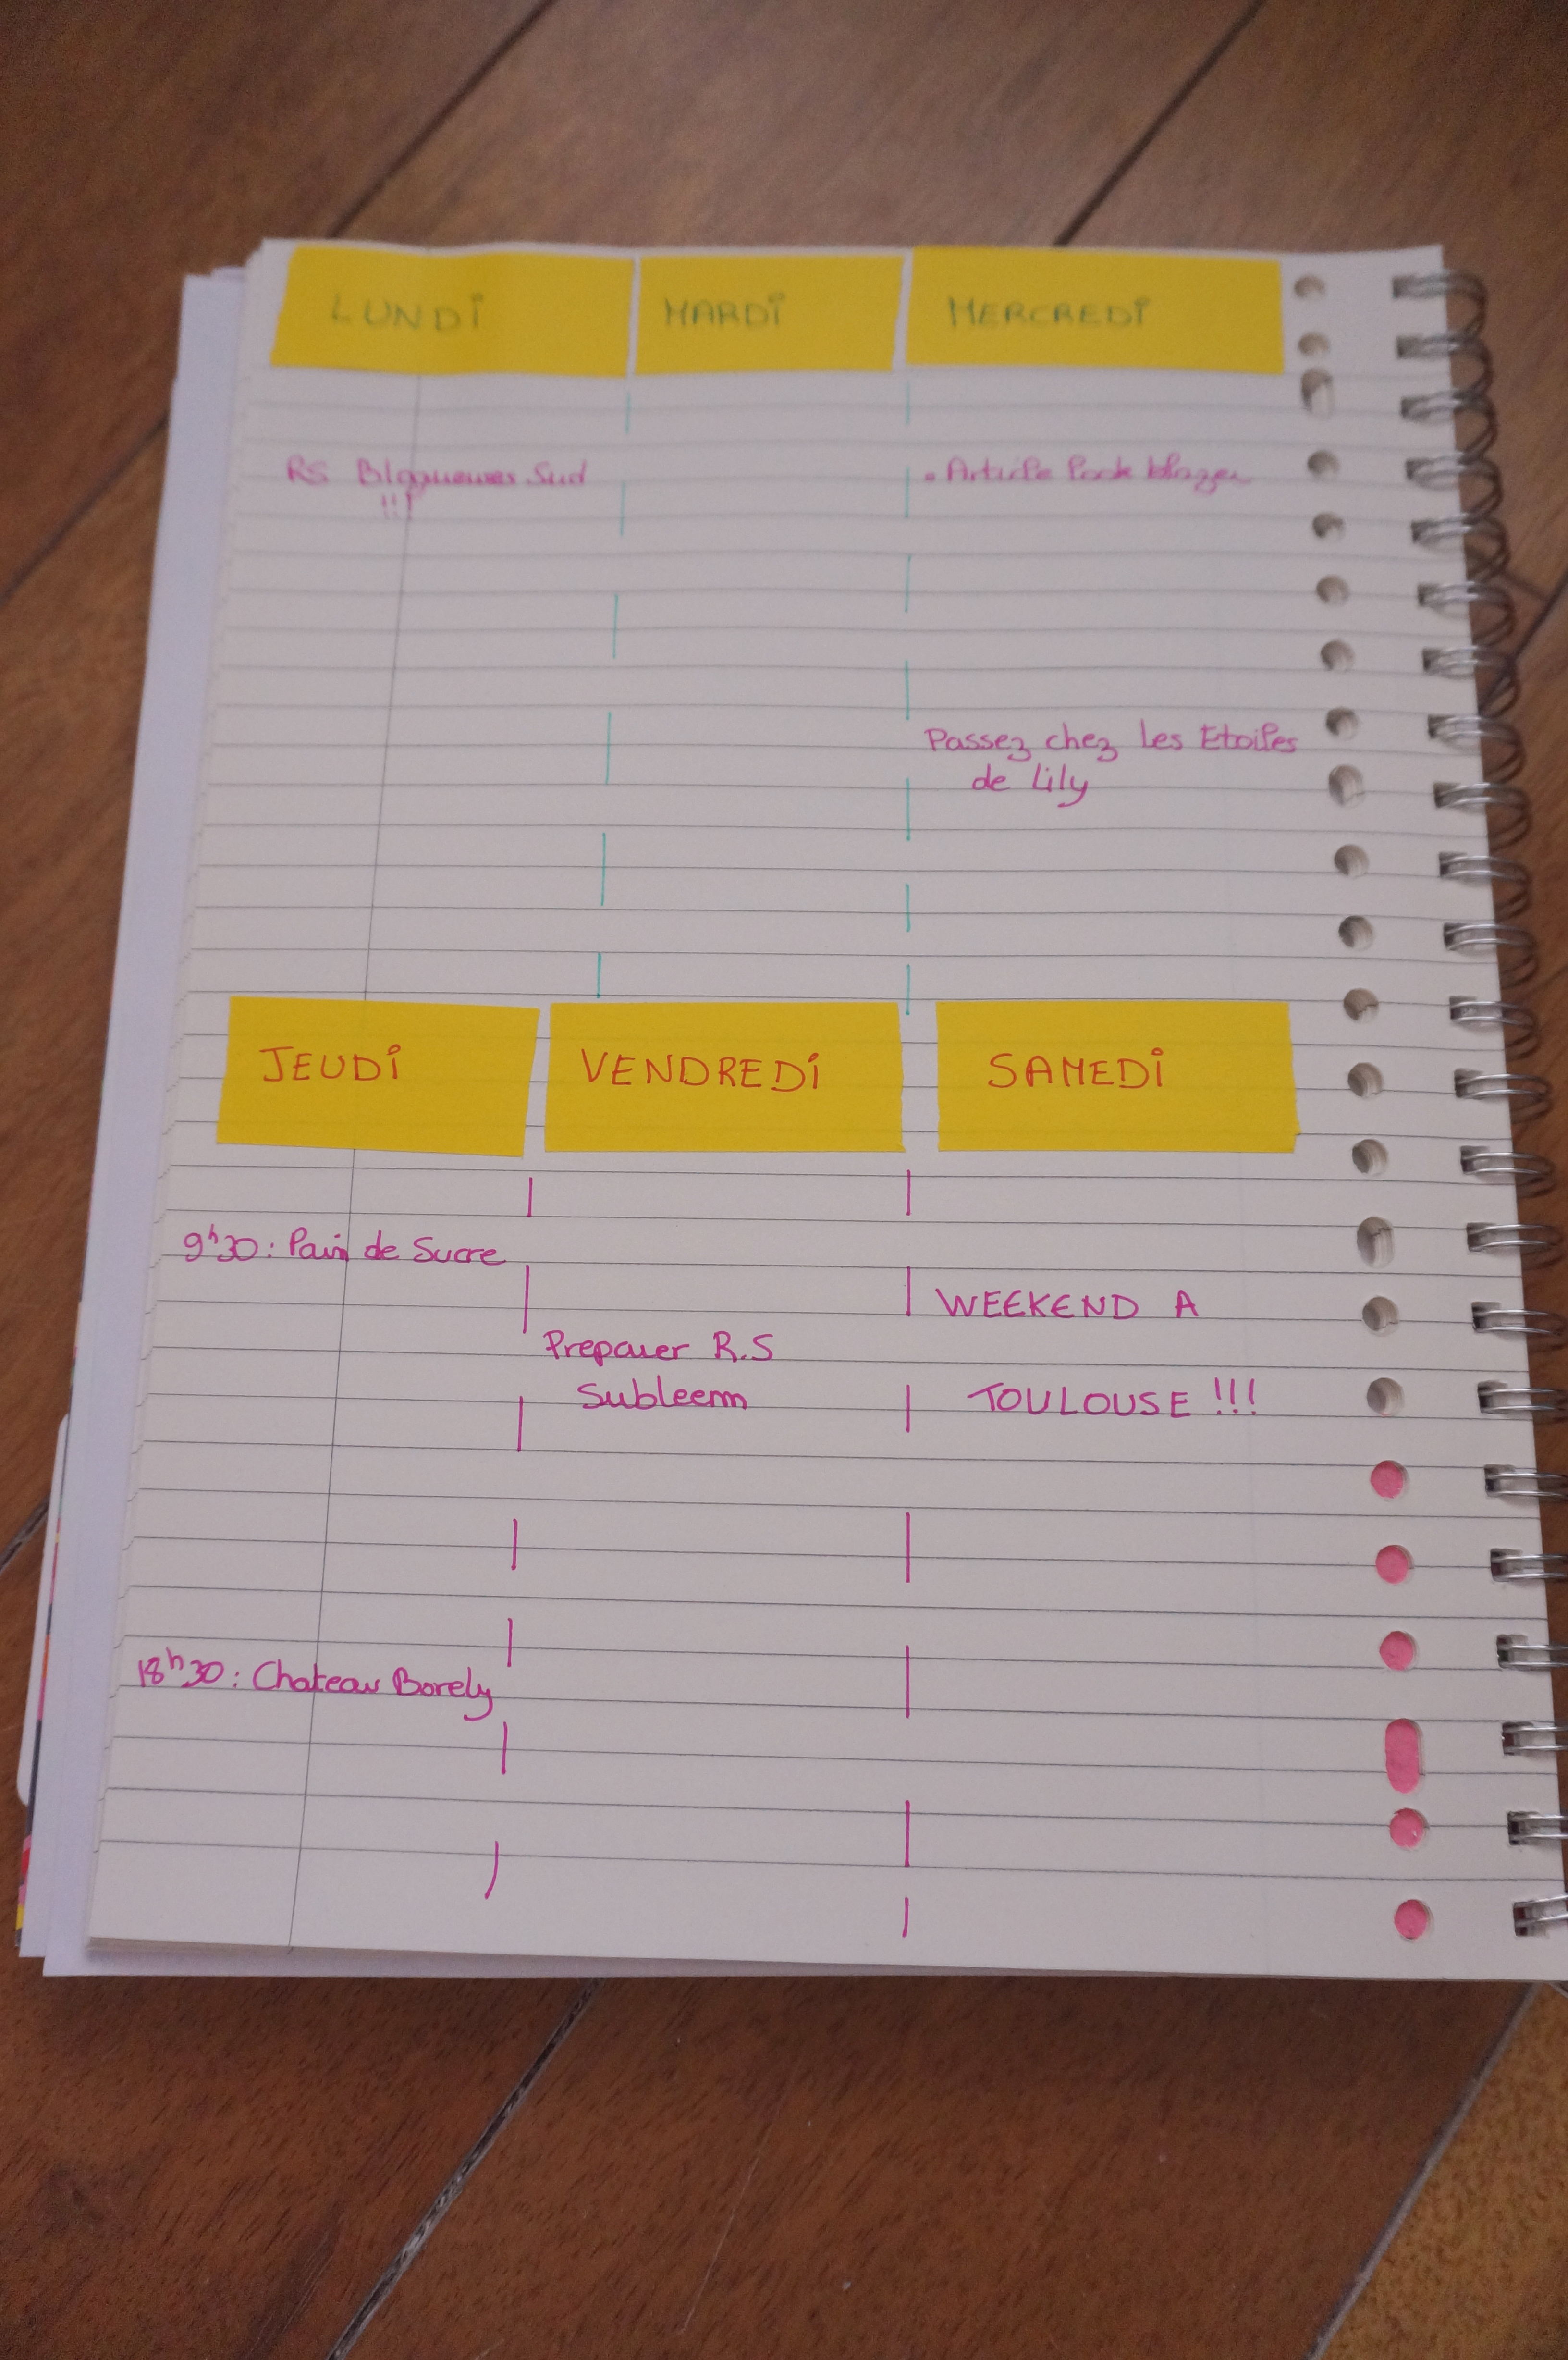 LUNDI
MARDI
MERCREDI
RS Blogueuses Sud
!!!
. Article look blazer
Passez chez Les Etoiles
de Lily
JEUDI
VENDREDI
SAMEDI
9h30: Pain de Sucre
18h30: Chateau Borely
Preparer R.S
Subleem
WEEKEND A
TOULOUSE !!!